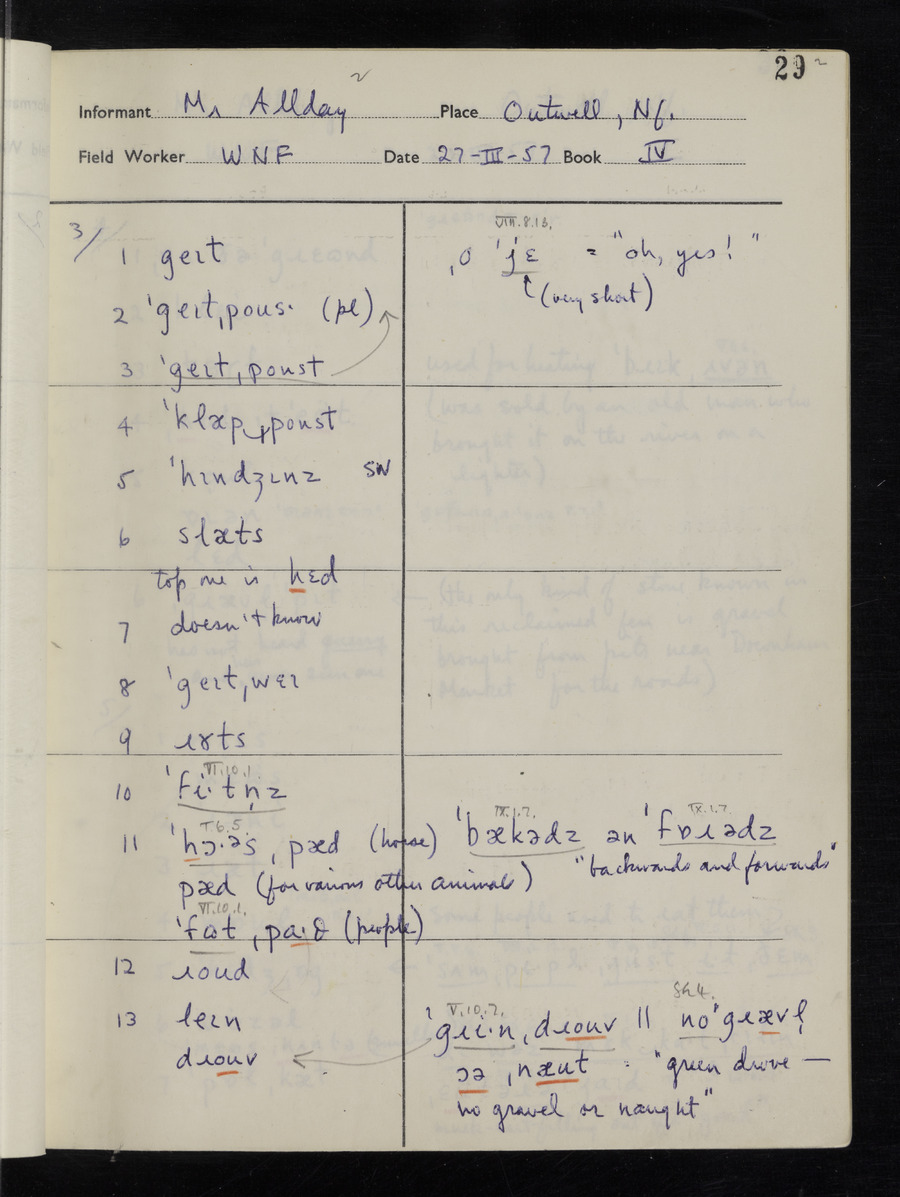 29
Informant Mr Allday Place Outwell, Nf.
Field Worker WNF Date 27-III-57 Book IV
3/
1 geɪt
2 ˈgeɪtˌpous· (pl)
3 ˈgeɪtˌpoust
4 ˈklæpˌpoust
5 ˈhɪndʒɪnz SW
6 slæts
top one is hɛd
7 doesn't know
8 ˈgeɪtˌweɪ
9 ɹɤts
VI.10.1.
10 ˈfi·tn̩z
I.6.5.
11 ˈhɔ·əs, pæd (horse)
pæd (for various other animals)
VI.10.1.
ˈfɷt, pa·θ (people)
12 ɹoud
13 leɪn
dɹouv
VIII.8.13.
ˌo ˈjɛ = "oh, yes!"
(very short)
IX.1.7. IX.1.7.
ˈbækədz ən ˈfɒɹədz
"backwards and forwards"
V.10.7.
ˈgɹi·nˌdɹouv || no ˈgɹævl̩
ɔəˌnæut = "green drove —
no gravel or naught"